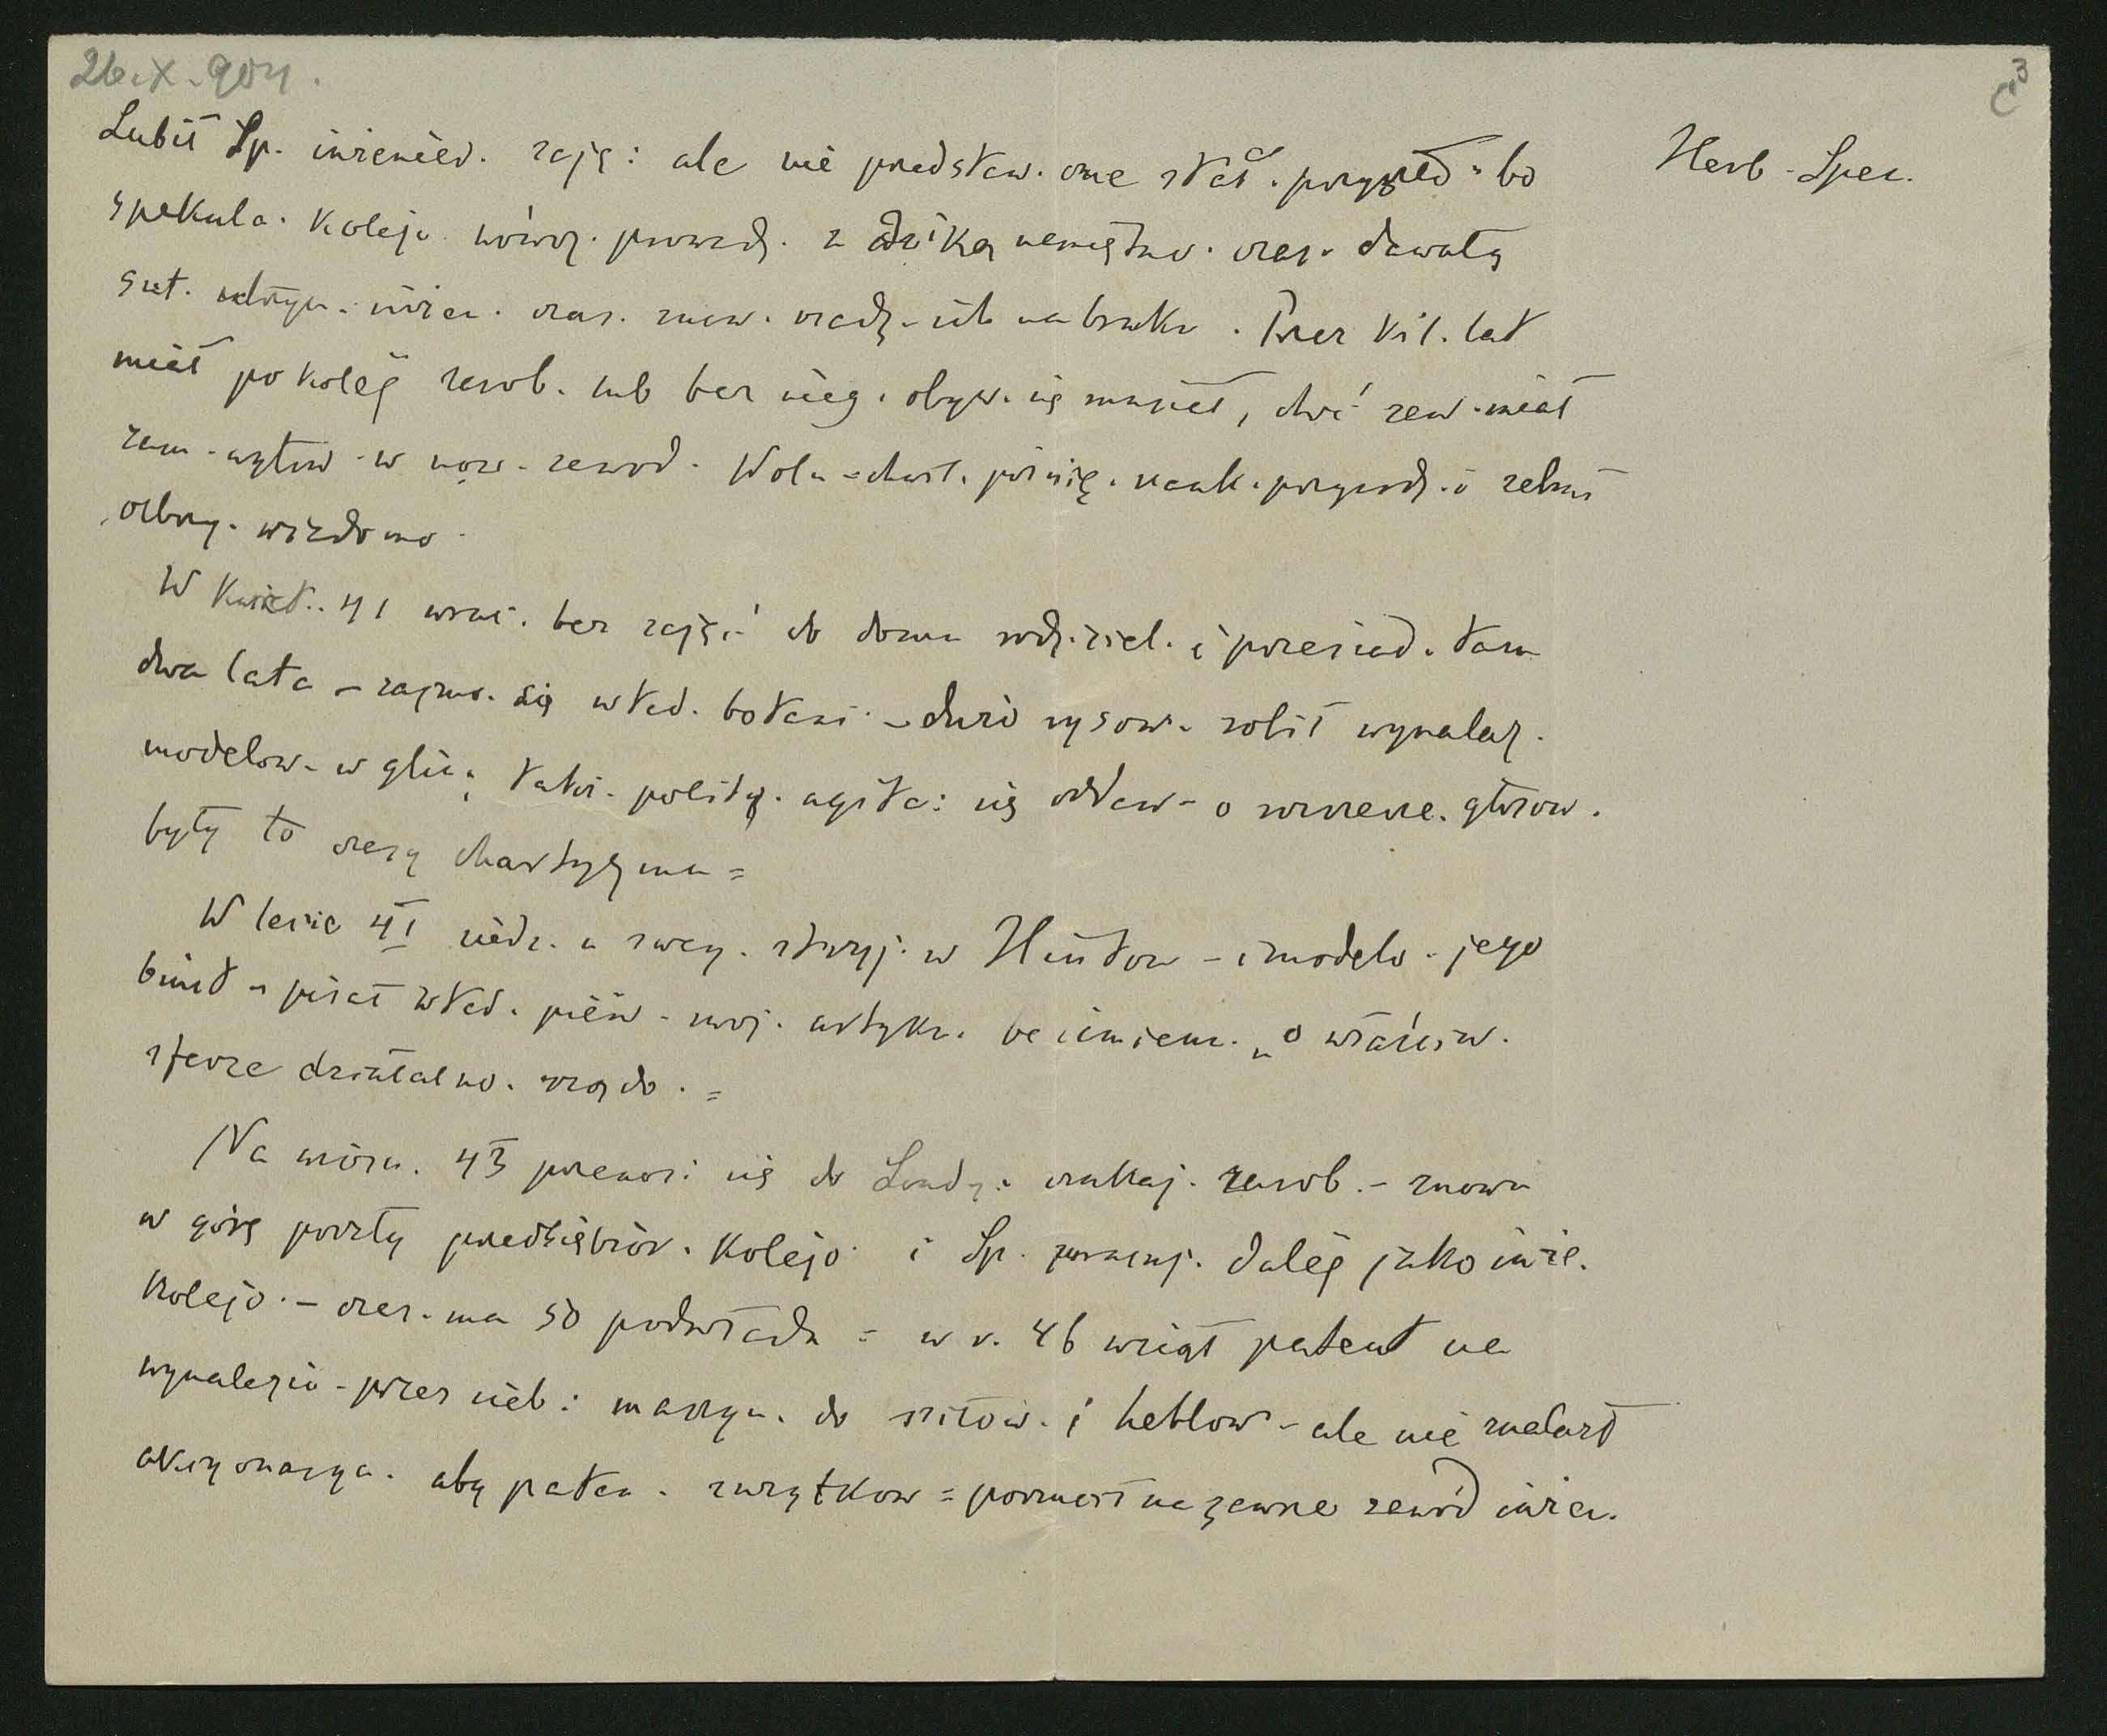 26.X.904.
C3
Herb. Spec.
Lubił Sp. inżenier. zaję: ale nie przedstaw. one stał. przyszło. bo
spekula. kolejo. wówcz. prowadz. z dziką namiętno. czas. dawały
set. utrzym. inżen. czas. znow. rzadz. ich na bruku. Przez kil. lat
miał po kolej zarob. lub bez nieg. obyw. się musiał, choć zaw. miał
zam. wytrw. w naz. zawod. Woln. chwil. poświę. nauk. przyrodz. i zebrał
olbrzy. wiadomo.
W kwiet. 41 wróc. bez zajęć do domu rodziciel. i przesiad. tam
dwa lata – zajmo. się wted. botani. – dużo rysow. robił wynalaz.
modelow. w glin. także polity. agita: się oddaw. o rozszerze. głosow.
były to czasy chartyzmu =
W lecie 41 siedz. u sweg. stryj. w Hinton – i modelo. jego
biust – pisał wted. pierw. swoj. artyku. bezimienn. „O właściw.
sferze działalno. rządo. =
Na wiosn. 43 przenosi się do Londy: szukaj. zarob. – znowu
w górę poszły przedsiębior. kolejo. i Sp. pracuj. dalej jako inże.
kolejo. – czas. ma 50 podwładn = w r. 46 wziął patent na
wynalezio. przez sieb: maszyn. do piłow. i heblow. – ale nie znalazł
akcyonarya. aby paten. zużytkow = porzucił na zawsze zawód inżen.